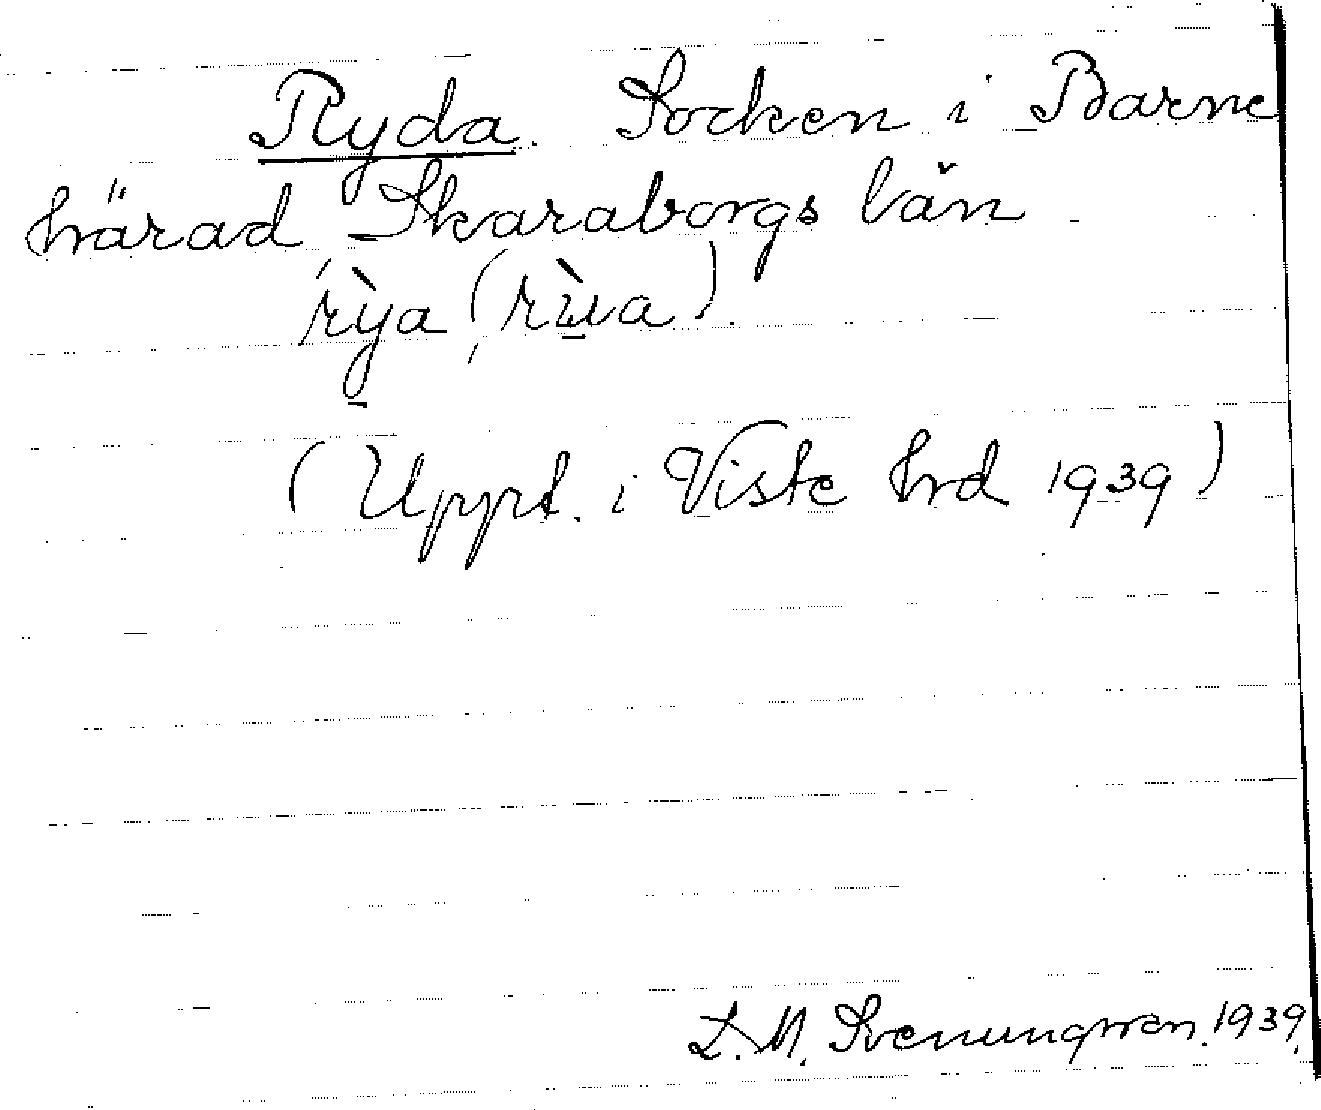 Ryda. Socken i Barne
härad Skaraborgs län.
rỳa (rùa).
(Uppt. i Viste hrd 1939)
L. M. Svenungsson. 1939.